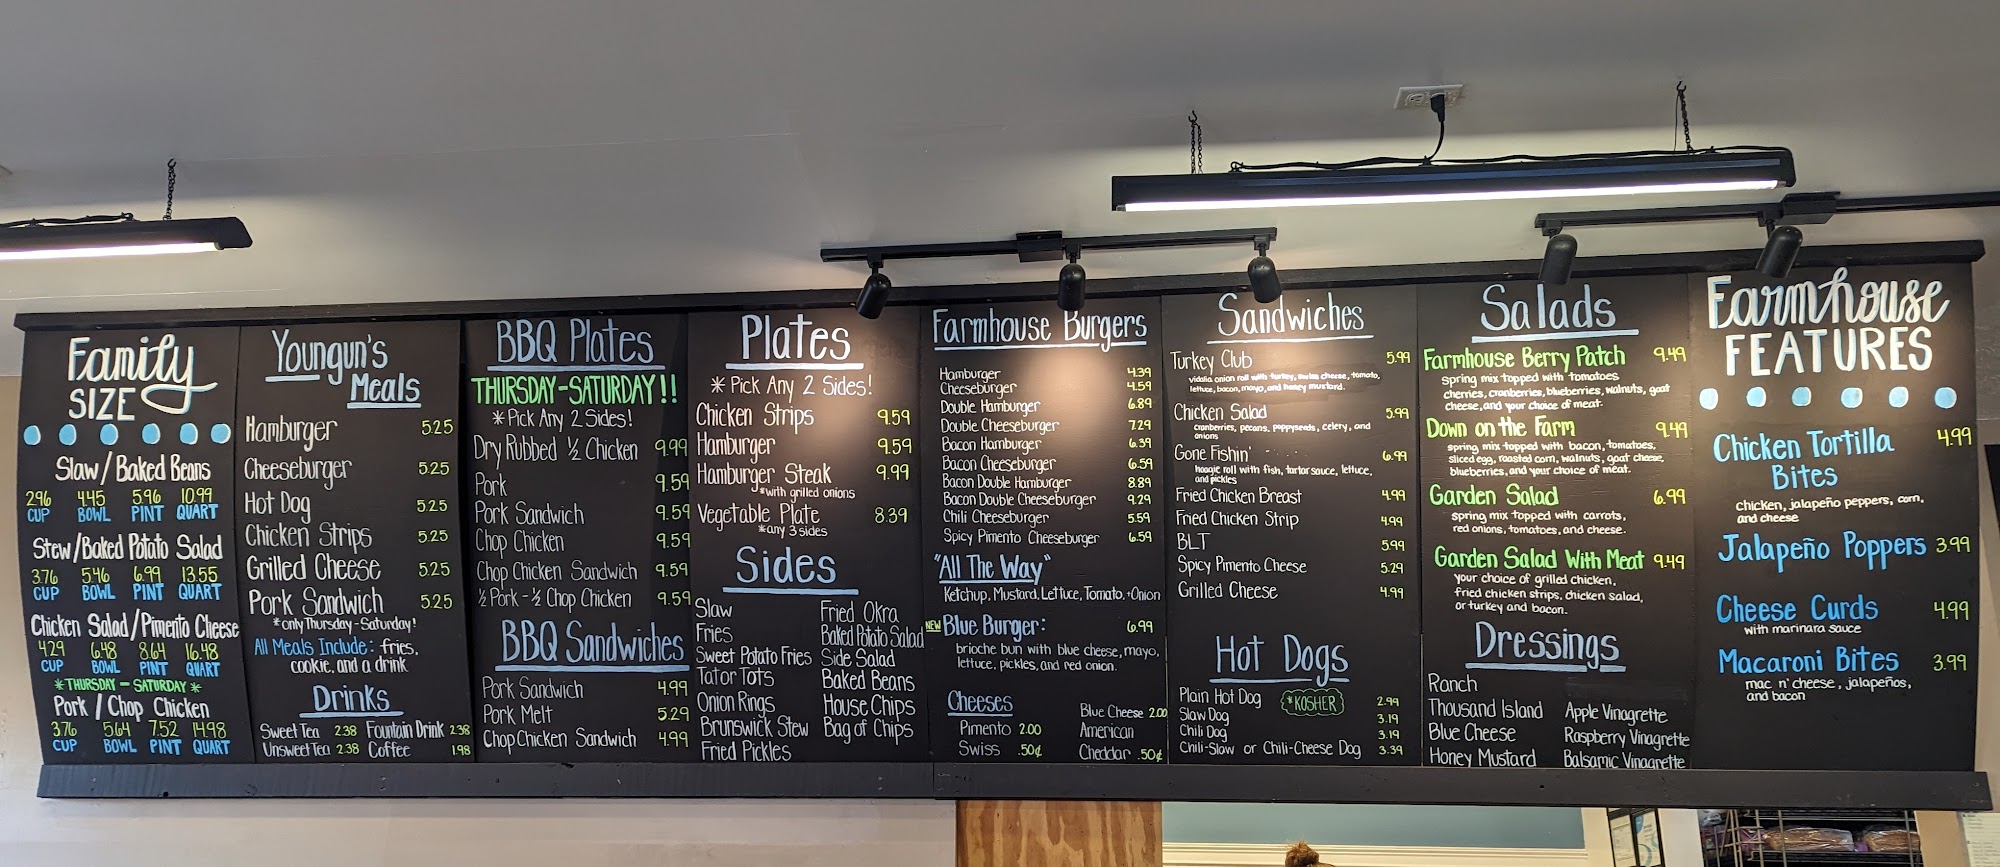 Family
SIZE
Slaw/Baked Beans
2.96 4.45 5.96 10.99
CUP BOWL PINT QUART
Stew/Baked Potato Salad
3.76 5.46 6.99 13.55
CUP BOWL PINT QUART
Chicken Salad/Pimento Cheese
4.29 6.48 8.64 16.48
CUP BOWL PINT QUART
*THURSDAY-SATURDAY*
Pork/Chop Chicken
3.76 5.64 7.52 14.98
CUP BOWL PINT QUART
Youngun's
Meals
Hamburger 5.25
Cheeseburger 5.25
Hot Dog 5.25
Chicken Strips 5.25
Grilled Cheese 5.25
Pork Sandwich 5.25
*only Thursday-Saturday!
All Meals Include: fries,
cookie, and a drink
Drinks
Sweet Tea 2.38 Fountain Drink 2.38
Unsweet Tea 2.38 Coffee 1.98
BBQ Plates
THURSDAY-SATURDAY!!
*Pick Any 2 Sides!
Dry Rubbed ½ Chicken 9.99
Pork 9.59
Pork Sandwich 9.59
Chop Chicken 9.59
Chop Chicken Sandwich 9.59
½ Pork-½ Chop Chicken 9.59
BBQ Sandwiches
Pork Sandwich 4.99
Pork Melt 5.29
Chop Chicken Sandwich 4.99
Plates
*Pick Any 2 Sides!
Chicken Strips 9.59
Hamburger 9.59
Hamburger Steak 9.99
*with grilled onions
Vegetable Plate 8.39
*any 3 sides
Sides
Slaw
Fries
Sweet Potato Fries
Tator Tots
Onion Rings
Brunswick Stew
Fried Pickles
Fried Okra
Baked Potato Salad
Side Salad
Baked Beans
House Chips
Bag of Chips
Farmhouse Burgers
Hamburger 4.39
Cheeseburger 4.59
Double Hamburger 6.89
Double Cheeseburger 7.29
Bacon Hamburger 6.39
Bacon Cheeseburger 6.59
Bacon Double Hamburger 8.89
Bacon Double Cheeseburger 9.29
Chili Cheeseburger 5.59
Spicy Pimento Cheeseburger 6.59
"All The Way"
Ketchup, Mustard, Lettuce, Tomato, +Onion
NEW Blue Burger: 6.99
brioche bun with blue cheese, mayo,
lettuce, pickles, and red onion.
Cheeses
Pimento 2.00
Swiss .50¢
Blue Cheese 2.00
American
Cheddar .50¢
Sandwiches
Turkey Club 5.99
vidalia onion roll with turkey, swiss cheese, tomato,
lettuce, bacon, mayo, and honey mustard.
Chicken Salad 5.99
cranberries, pecans, poppyseeds, celery, and
onions
Gone Fishin' 6.99
hoagie roll with fish, tartar sauce, lettuce,
and pickles
Fried Chicken Breast 4.99
Fried Chicken Strip 4.99
BLT 5.99
Spicy Pimento Cheese 5.29
Grilled Cheese 4.99
Hot Dogs
Plain Hot Dog *KOSHER 2.99
Slaw Dog 3.19
Chili Dog 3.19
Chili-Slaw or Chili-Cheese Dog 3.39
Salads
Farmhouse Berry Patch 9.49
spring mix topped with tomatoes
cherries, cranberries, blueberries, walnuts, goat
cheese, and your choice of meat.
Down on the Farm 9.49
spring mix topped with bacon, tomatoes,
sliced egg, roasted corn, walnuts, goat cheese,
blueberries, and your choice of meat.
Garden Salad 6.99
spring mix topped with carrots,
red onions, tomatoes, and cheese.
Garden Salad With Meat 9.49
your choice of grilled chicken,
fried chicken strips, chicken salad,
or turkey and bacon.
Dressings
Ranch
Thousand Island
Blue Cheese
Honey Mustard
Apple Vinagrette
Raspberry Vinagrette
Balsamic Vinagrette
Farmhouse
FEATURES
Chicken Tortilla 4.99
Bites
chicken, jalapeño peppers, corn,
and cheese
Jalapeño Poppers 3.99
Cheese Curds 4.99
with marinara sauce
Macaroni Bites 3.99
mac n' cheese, jalapeños,
and bacon